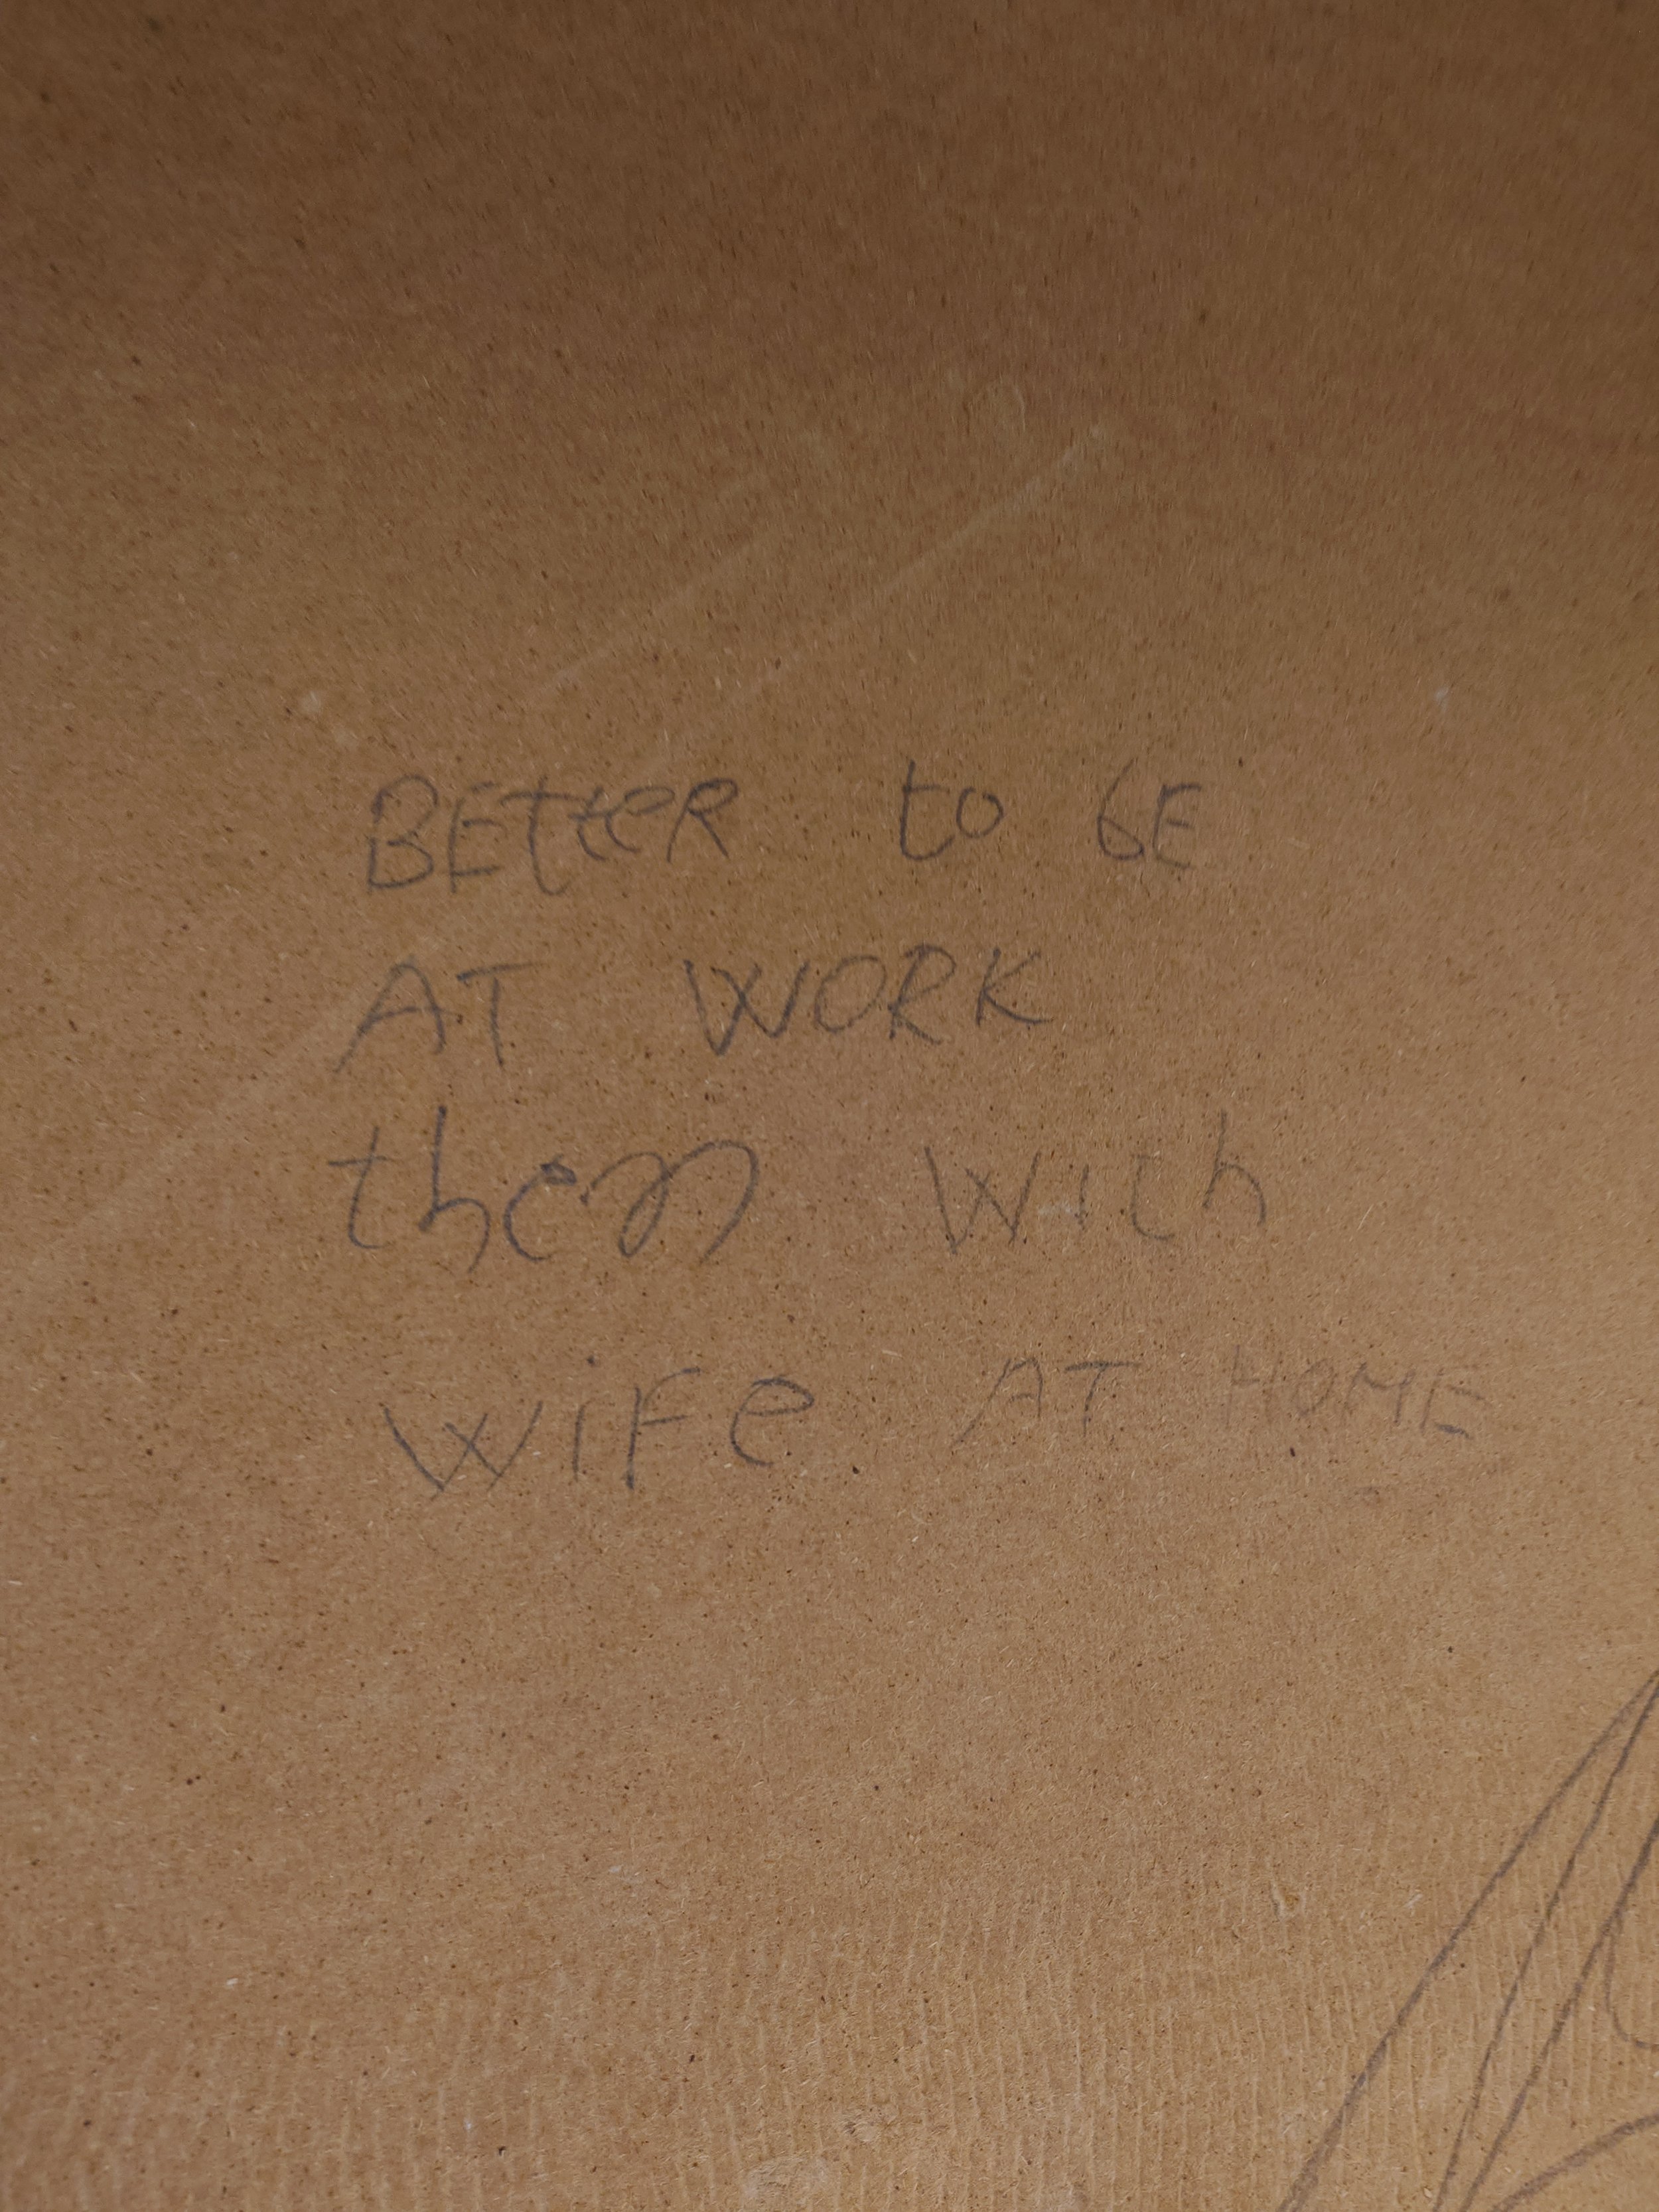 BEtteR to bE
AT WORK
then with
wiFe AT HOME